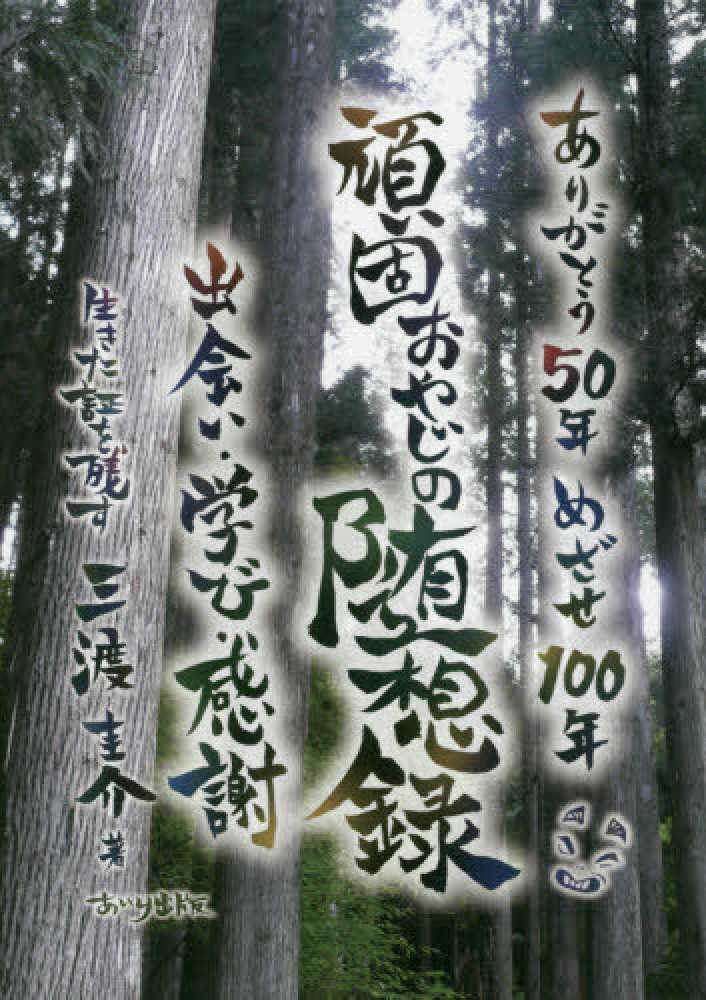 ありがとう50年 めざせ100年
頑固おやじの随想録
出会い・学び・感謝
生きた証を残す 三渡圭介 著
あいり出版